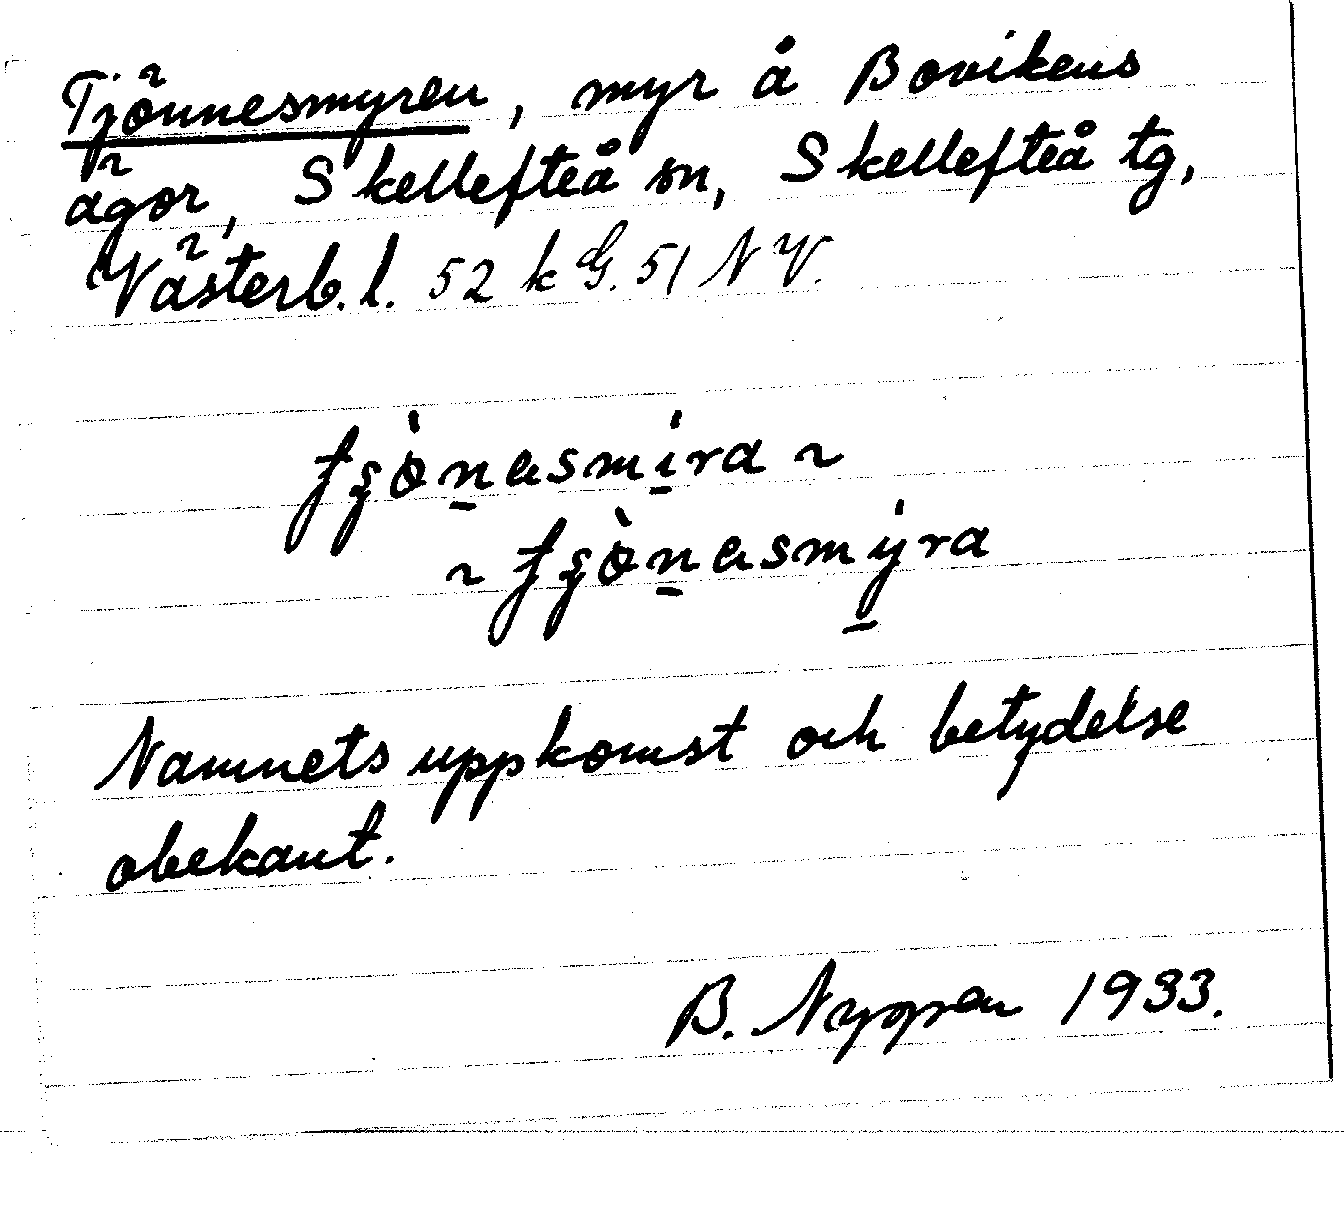 Tjönnesmyren, myr å Bovikens
ägor, Skellefteå sn, Skellefteå tg,
Västerb. l. 52 k G. 51 N V.
~
~
Namnets uppkomst och betydelse
obekant.
B. Nygren 1933.